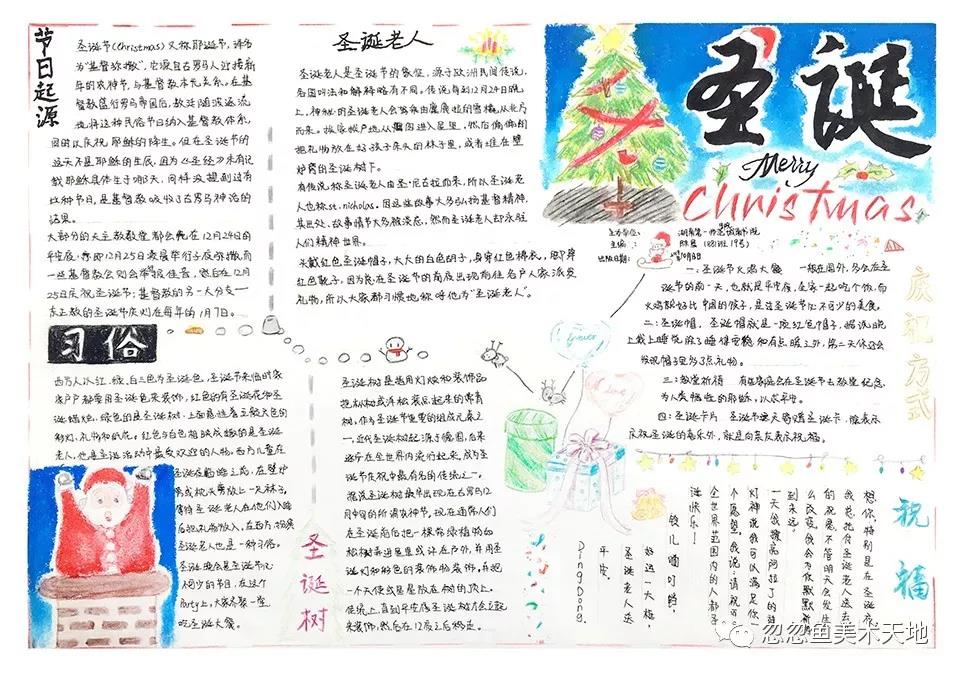 节日起源
圣诞节(Christmas)又称耶诞节,译名
为“基督弥撒”,它源自古罗马人迎接新
年的农神节,与基督教本无关系,在基
督教盛行罗马帝国后,教廷随波逐流
地将这种民俗节日纳入基督教体系,
同时以庆祝耶稣的降生。但在圣诞节的
这天不是耶稣的生辰,因为《圣经》未有记
载耶稣具体生于哪天,同样没提到过有
这种节日,是基督教吸收了古罗马神话的
结果。
大部分的天主教教堂都会先在12月24日的
平安夜,亦即12月25日凌晨举行子夜弥撒,而
一些基督教会则会举行报佳音,然后在12月
25日庆祝圣诞节;基督教的另一大分支——
东正教的圣诞节庆则在每年的1月7日。
圣诞老人
圣诞老人是圣诞节的象征,源于欧洲民间传说,
各国叫法和解释略有不同。传说每到12月24日晚
上,神秘的圣诞老人会驾乘由
而来,挨家挨户地从烟囱进入屋里,然后偷偷的
把礼物放在好孩子床头的袜子里,或者堆在壁
炉旁的圣诞树下。
有传说称圣诞老人由圣·尼古拉而来,所以圣诞老
人也称st.nicholas,因这些故事大多弘扬基督精神,
其出处、故事情节大多被淡忘,然而圣诞老人却永驻
人们精神世界。
头戴红色圣诞帽子,大大的白色胡子,身穿红色棉衣,脚穿
红色靴子,因为总在圣诞节的前夜出现
礼物,所以大家都习惯地称呼他为“圣诞老人”。
圣诞
Merry
Christmas
主办单位:
主编:
出版日期:
庆祝方式
一:圣诞节火鸡大餐 一般在国外,多会在圣
诞节的前一天,也就是平安夜,全家一起吃个饭,而
火鸡就好比中国的饺子,是这圣诞节必不可少的美食。
二:圣诞帽,圣诞帽就是一顶红色帽子,据说晚
上戴上睡觉除了睡得安稳和有点暖之外,第二天你还会
发现帽子里多了点礼物。
三:教堂祈祷 有些家庭会在圣诞节去教堂纪念
为人类牺牲的耶稣,以求平安。
四:圣诞卡片 圣诞节要天赠赠圣诞卡,除表示
庆祝圣诞的喜乐外,就是向亲友表示祝福。
习俗
西方人以红、绿、白三色为圣诞色,圣诞节来临时家
家户户都要用圣诞色来装饰,红色的有圣诞花和圣
诞蜡烛,绿色的是圣诞树,上面悬挂着五颜六色的
彩灯、礼物和纸花。红色与白色相映成趣的是圣诞
老人,他是圣诞活动中最受欢迎的人物。西方儿童在
圣诞夜临睡之前,在壁炉
旁或枕头旁放上一只袜子,
等待圣诞老人在他们入睡
后把礼物放入,在西方,扮演
圣诞老人也是一种习俗。
圣诞晚会是圣诞节必
不可少的节目,在这个
party上,大家齐聚一堂
吃圣诞大餐。
圣诞树
圣诞树是指用灯烛和装饰品
把枞树或洋松装点起来的常青
树,作为圣诞节重要的组成元素之
一,近代圣诞树起源于德国,后来
逐步在全世界内流行起来,成为圣
诞节庆祝中最有名的传统之一。
据说圣诞树最早出现在古罗马12
月中旬的所谓农神节,现在通常人们
在圣诞前后把一棵常绿植物如
松树弄进屋里或许在户外,并用圣
诞灯和彩色的装饰物装饰,并把
一个天使或星星放在树的顶上。
传统上,直到平安夜圣诞树才会立起
来装饰,然后在12夜之后移走。
祝福
想你,特别是在圣诞夜
我总托付圣诞老人送去
的祝愿,不管明天会发生
么改变,我会为你默默祈
到永远。
一天我擦亮阿拉丁的油
灯,神说我可以满足你一
个愿望,我说:请祝正在
全世界范围内的人都子
诞快乐!
铃儿响叮当,
好运一大梳,
圣诞老人送
平安。
DingDong
忽忽鱼美术天地